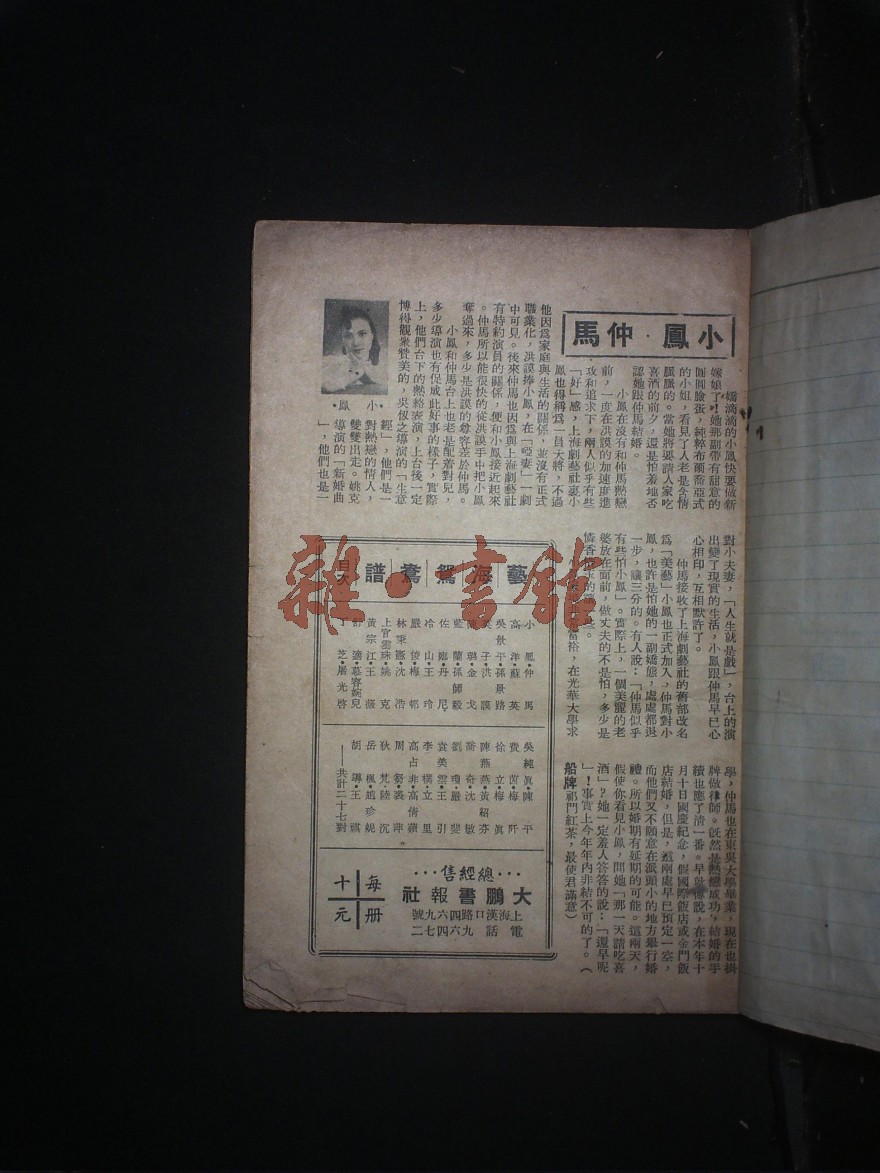 小鳳·仲馬
嬌滴滴的小鳳快要做新
嫁娘了，她那副帶有甜意的
圓圓臉蛋，純粹布爾喬亞式
的小姐，看見了人老是含情
脈脈的。當她將要請人家吃
喜酒的前夕，還是怕羞地否
認她跟仲馬結婚。
小鳳在沒有和仲馬熱戀
前，一度在洪謨的加速度進
攻和追求下，兩人似乎有些
「好」感，上海劇藝社裏小
鳳也得稱為一員大將，不過
他因為家庭與生活的關係，並沒有正式
職業化，洪謨捧小鳳，在「啞妻」一劇
中可見。後來仲馬也因為與上海劇藝社
有特約演員的關係，便和小鳳接近起來
。仲馬所以能很快的從洪謨手中把小鳳
奪過來，多少是洪謨的尊容差於仲馬。
小鳳和仲馬台上也老是配着對兒，
多少導演也有促成此好事的樣子，實際
上，他們台下的熱絡表演，上台後一定
博得觀衆贊美的，吳仞之導演的「生意
經」，他們是一
對熱戀的情人，
雙雙出走。姚克
導演的「新婚曲
」，他們也是一
·小鳳·
對小夫妻，「人生就是戲」，台上的演
出變了現實的生活，小鳳跟仲馬早已心
心相印，互相默許了。
仲馬接收了上海劇藝社的舊部改名
為「美藝」小鳳也正式加入，仲馬對小
鳳，也許是怕她的一副嬌態，處處都退
一步，讓三分的。有人說：「仲馬似乎
有些怕小鳳」。實際上，一個美麗的老
婆放在面前，做丈夫的不是怕，多少是
富裕，在光華大學求
學，仲馬也在東吳大學畢業，現在也掛
牌做律師。既然是熱戀成功，結婚的手
續也應了清一番。早就傳說，在本年十
月十日國慶紀念，假國際飯店或金門飯
店結婚，但是，這兩處早已預定一空，
而他們又不願意在派頭小的地方舉行婚
禮。所以婚期有延期的可能。這兩天，
假使你看見小鳳，問她「那一天請吃喜
酒一？她一定羞人答答的說：「還早呢
一！事實上今年年內非結不可的了。（
船牌祁門紅茶，最使君滿意）
藝海鴛鴦譜
目次
小鳳·仲馬
高洋·蘇英
吳景平·孫景路
英子·洪謨
藍蘭·孫師毅
冷山·王玲
嚴俊·梅邨
林秉憲·沈浩
上官雲珠·姚克
黃宗江·王薇
舒適·慕容婉兒
丁芝·屠光啓
吳純眞·陳平
費茵·梅阡
徐立·梅眞
陳燕燕·黃紹芬
喬奇·沈敏
劉瓊·嚴斐
袁美雲·王引
李樸·立里
高占非·高倩蘋
周芻·裘萍
狄梵·陸沉
岳楓·趙珍妮
胡導·王祺
——共計二十七對
···總經售···
大鵬書報社
上海漢口路四六九號
電話 九六四七二
每册
十元
雜·書館